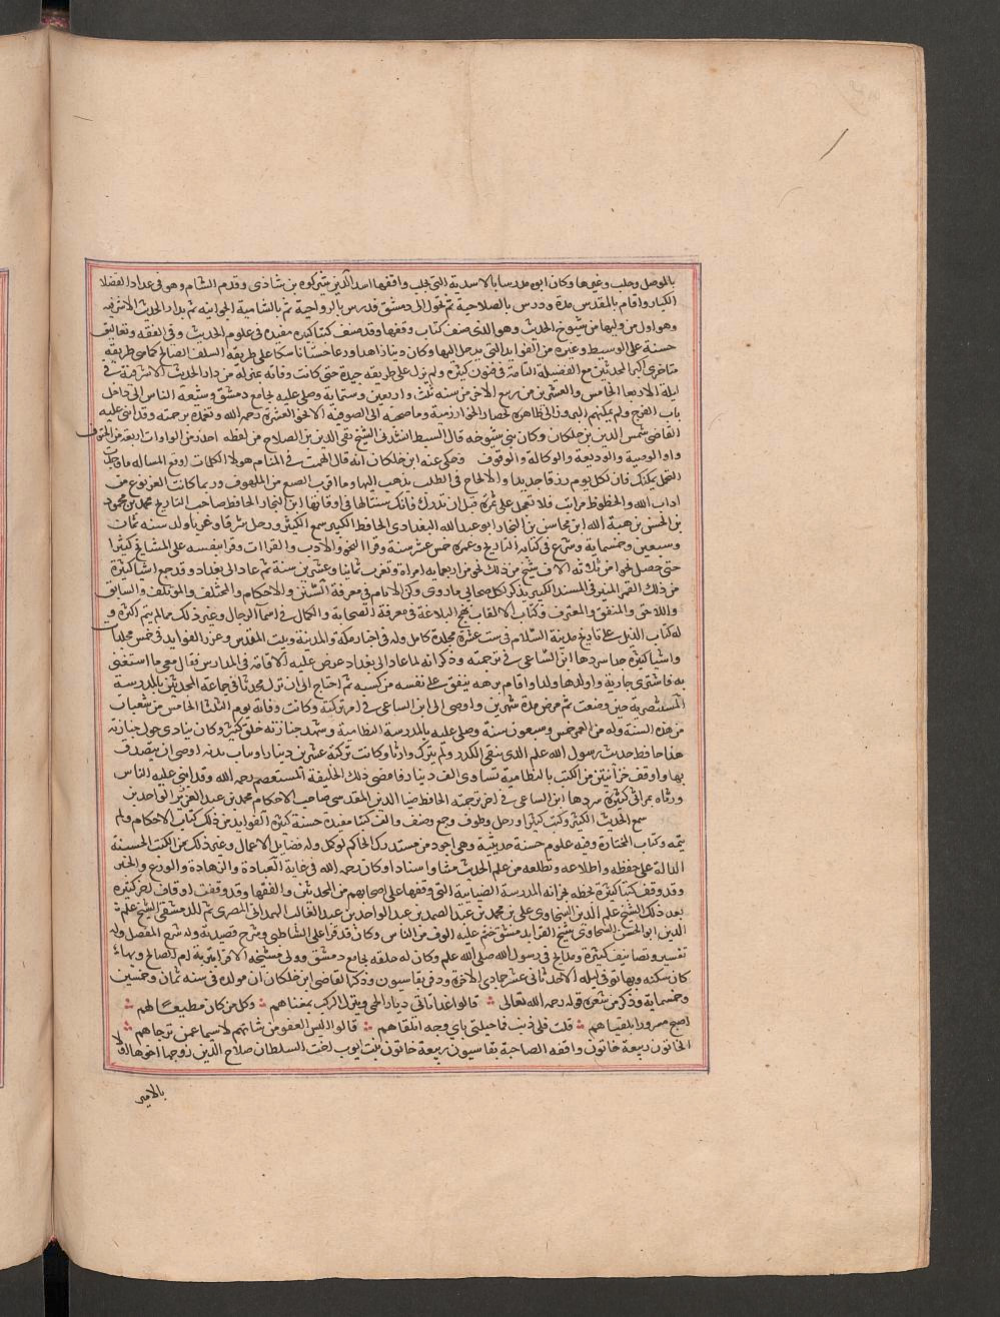 بالموصل وحلب وغيرها وكان ابوه مدرسا بالاسدية التى بحلب واقفها اسد الدين شيركوه بن شاذى وقدم الشام وهو فى عداد الفضلا
الكبار واقام بالمقدس مدة ودرس بالصلاحية ثم تحول الى دمشق فدرس بالرواحية ثم بالشامية الجوانيه ثم بدار الحديث الاشرفيه
وهو اول من وليها من شيوخ الحديث وهو الذى صنف كتاب وقفها وقد صنف كتبا كثيرة مفيده فى علوم الحديث وفى الفقه وتعاليق
حسنة على الوسيط وغيره من الفوايد التى يرحل اليها وكان دينا زاهدا ورعا حسنا ناسكا على طريقه السلف الصالح كما هى طريقه
متاخرى اكثر المحدثين مع الفضيلة التامة فى فنون كثيرة ولم يزل على طريقه جيدة حتى كانت وفاته بمنزله من دار الحديث الاشرفية فى
ليلة الاربعا الخامس والعشرين من ربيع الاخر من سنه ثلث واربعين وستماية وصلى عليه بجامع دمشق وشيعه الناس الى داخل
باب الفرج ولم يمكنهم البروز الى ظاهره لحصار الخوارزمية وما صحبه الى الصوفية الا نحو العشرة رحمه الله وتغمده برحمته وقد اثنى عليه
القاضى شمس الدين بن خلكان وكان من شيوخه قال السبط انشدنى الشيخ تقى الدين بن الصلاح من لفظه احذر من الواوات اربعة فهن من الحتوف
واو الوصية والوديعة والوكالة والوقوف وحكى عنه ابن خلكان انه قال الهمت فى المنام هولا الكلمات ادفع المساله ما وجدت
التحمل يمكنك فان لكل يوم رزقا جديدا والالحاح فى الطلب يذهب البها وما اقرب الصنع من الملهوف وربما كانت الغير نوع من
اداب الله والحظوظ مراتب فلا تعجل على ثمرة قبل ان تدرك فانك ستنالها فى اوقاتها ابن النجار الحافظ صاحب التاريخ محمد بن محمود
بن الحسن بن هبة الله ابن محاسن بن النجار ابو عبد الله البغدادى الحافظ الكبير سمع الكثير ورحل شرقا وغربا ولد سنه ثمان
وسبعين وخمسماية وشرع فى كتابه التاريخ وعمره خمس عشر سنة وقرا النحو والادب والقراات وقرا بنفسه على المشايخ كثيرا
حتى حصل نحوا من ثلاثه الاف شيخ من ذلك نحو من اربعمايه امراة وتغرب ثمانيا وعشرين سنة ثم عاد الى بغداد وقد جمع اشيا كثيرة
من ذلك القمر المنير فى المسند الكبير يذكر لكل صحابى ما روى وكنز الانام فى معرفة السنن والاحكام والمختلف والموتلف والسابق
واللاحق والمتفق والمفترق وكتاب الالقاب نهج البلاغة فى معرفة الصحابة والكمال فى اسما الرجال وغير ذلك مما لم يتم اكثره و
له كتاب الذيل على تاريخ مدينة السلام فى ست عشرة مجلدة كامل وله فى اخبار مكة والمدينة وبيت المقدس وغرر الفوايد فى خمس مجلدات
واشيا كثيرة جدا سردها ابن الساعى فى ترجمته وذكر انه لما عاد الى بغداد عرض عليه الاقامة فى المدارس فقال معى ما استغنى
به فاشترى جارية واولدها ولدا واقام برهه ينفق على نفسه من كسبه ثم احتاج الى ان نزل محدثا فى جماعة المحدثين بالمدرسة
المستنصرية حين وضعت ثم مرض مدة شهرين واوصى الى ابن الساعى فى امر تركته وكانت وفاته يوم الثلثا الخامس من شعبان
من هذه السنة وله من العمر خمس وسبعون سنة وصلى عليه بالمدرسة النظامية وشهد جنازته خلق كثير وكان ينادى حول جنازته
هذا حافظ حديث رسول الله صلعم الذى ينفى الكذب ولم يترك وارثا وكانت تركته عشرين دينارا وثياب بدنه اوصى ان يتصدق
بها واوقف خزانتين من الكتب بالنظامية تساوى الف دينار فامضى ذلك الخليفة المستعصم رحمه الله وقد اثنى عليه الناس
ورثاه بمراثى كثيرة سردها ابن الساعى فى اخر ترجمته الحافظ ضيا الدين المقدسى صاحب الاحكام محمد بن عبد العزيز الواحد بن
سمع الحديث الكثير وكتب كثيرا ورحل وطوف وجمع وصنف والف كتبا مفيدة حسنة كثيرة الفوايد من ذلك كتاب الاحكام ولم
يتمه وكتاب المختارة وفيه علوم حسنة حديثية وهى اجود من مستدرك الحاكم لو كمل وله فضايل الاعمال وغير ذلك من الكتب الحسنة
الدالة على حفظه واطلاعه وتطلعه من علم الحديث متنا واسنادا وكان رحمه الله فى غاية العبادة والزهادة والورع والخير
وقد وقف كتبا كثيرة بخطه بخزانه المدرسة الضيايية التى وقفها على اصحابهم من المحدثين والفقها وقد وقفت اوقاف اخر كثيرة
بعد ذلك الشيخ علم الدين السخاوى على بن محمد بن عبد الصمد بن عبد الواحد بن عبد الغالب الهمدانى المصرى ثم الدمشقى الشيخ علم
الدين ابو الحسن السخاوى شيخ القرا بدمشق ختم عليه الوف من الناس وكان قد قرا على الشاطبى وشرح قصيدته وله شرح المفصل وله
تفسير وتصانيف كثيرة ومدايح فى رسول الله صلى الله علم وكان له حلقه بجامع دمشق وولى مشيخه الاقرا بتربة ام الصالح وبها
كان سكنه وبها توفى ليله الاحد ثانى عشر جمادى الاخرة ودفن بقاسيون وذكر القاضى ابن خلكان ان مولده فى سنه ثمان وخمسين
وخمسماية وذكر من شعره قوله رحمه الله تعالى قالوا غدا ناتى ديار الحمى وينزل الركب بمغناهم وكل من كان مطيعا لهم
اصبح مسرورا بلقياهم قلت فلى ذنب فاحيلتى باى وجه اتلقاهم قالوا اليس العفو من شانهم لا سيما عمن ترجاهم
الخاتون ربيعة خاتون واقفه الصاحبة بقاسيون ربيعة خاتون بنت ايوب اخت السلطان صلاح الدين زوجها اخوها اولا
بالامير